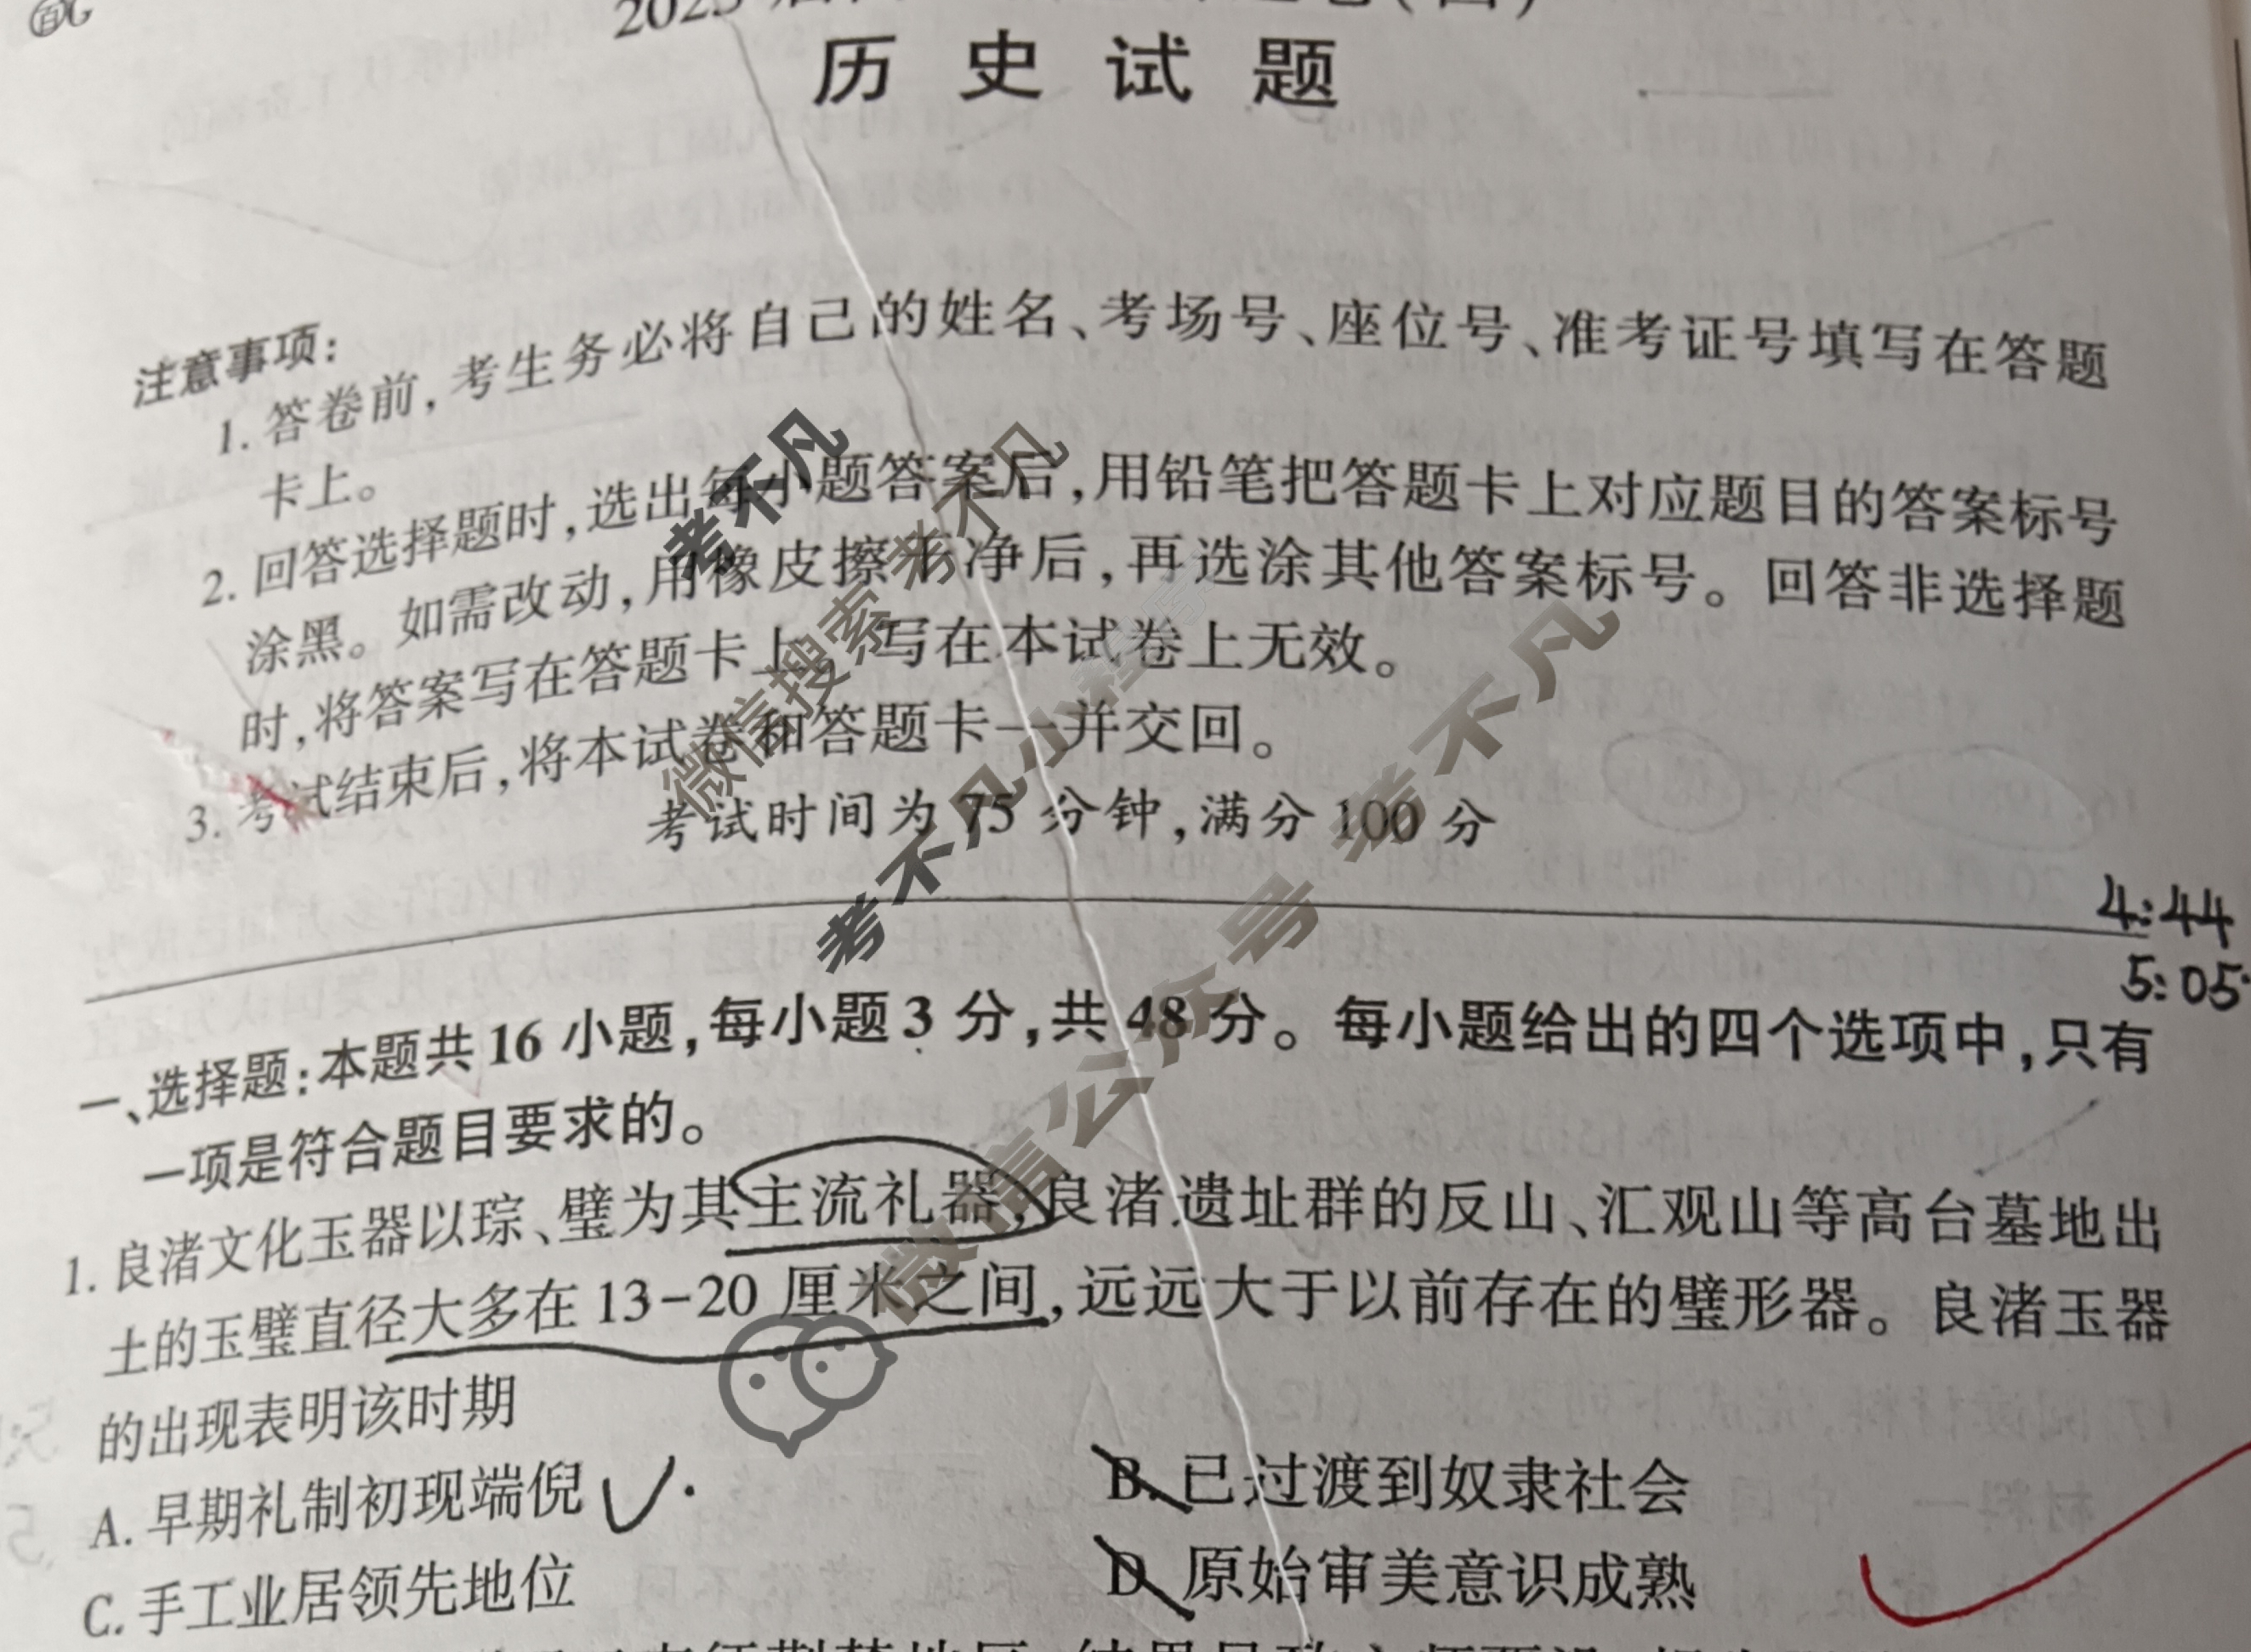 历史试题
注意事项：
1. 答卷前，考生务必将自己的姓名、考场号、座位号、准考证号填写在答题
卡上。
2. 回答选择题时，选出每小题答案后，用铅笔把答题卡上对应题目的答案标号
涂黑。如需改动，用橡皮擦干净后，再选涂其他答案标号。回答非选择题
时，将答案写在答题卡上。写在本试卷上无效。
3. 考试结束后，将本试卷和答题卡一并交回。
考试时间为 75 分钟，满分 100 分
4:44
5:05
一、选择题：本题共 16 小题，每小题 3 分，共 48 分。每小题给出的四个选项中，只有
一项是符合题目要求的。
1. 良渚文化玉器以琮、璧为其主流礼器，良渚遗址群的反山、汇观山等高台墓地出
土的玉璧直径大多在 13-20 厘米之间，远远大于以前存在的璧形器。良渚玉器
的出现表明该时期
A. 早期礼制初现端倪
B. 已过渡到奴隶社会
C. 手工业居领先地位
D. 原始审美意识成熟
考不凡
微信搜索 考不凡
考不凡小程序
微信公众号 考不凡